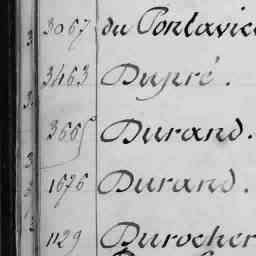 3067 du Pontavice
3463 Dupré.
3665 Durand.
1676 Durand.
1129 Durocher